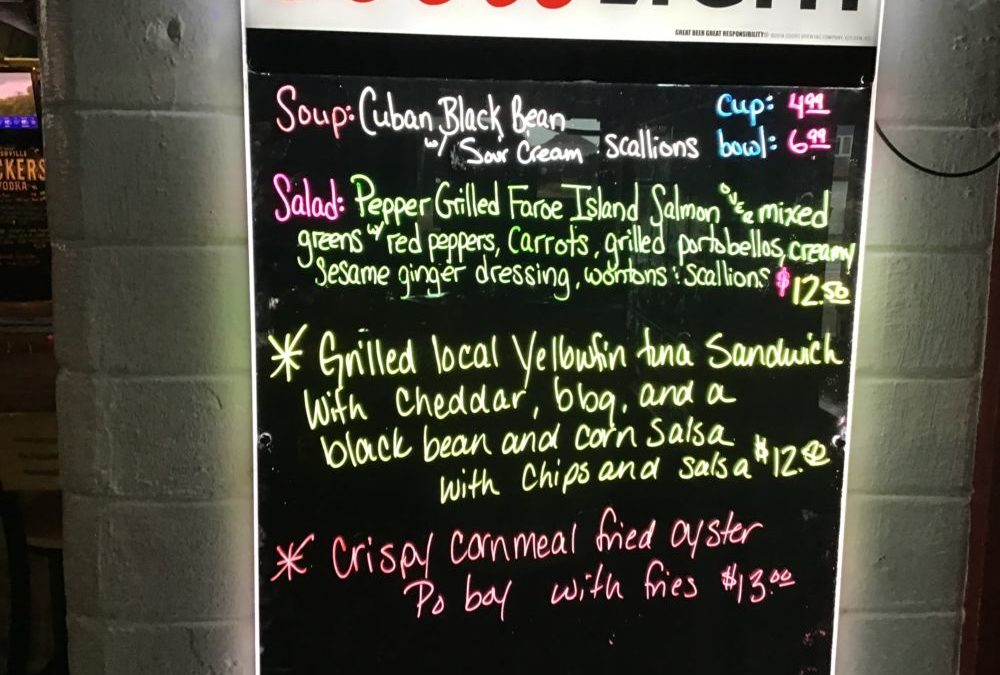 LIGHT
GREAT BEER GREAT RESPONSIBILITY®
Soup: Cuban Black Bean
w/ Sour Cream & scallions
Cup: 4.99
bowl: 6.99
Salad: Pepper Grilled Faroe Island Salmon over a mixed
greens w/ red peppers, Carrots, grilled portobellos, creamy
Sesame ginger dressing, wontons & scallions $12.50
* Grilled local Yellowfin tuna Sandwich
With Cheddar, bbq, and a
black bean and corn salsa
with Chips and salsa $12.00
* Crispy cornmeal fried oyster
Po boy with fries $13.00
CKERS
VODKA